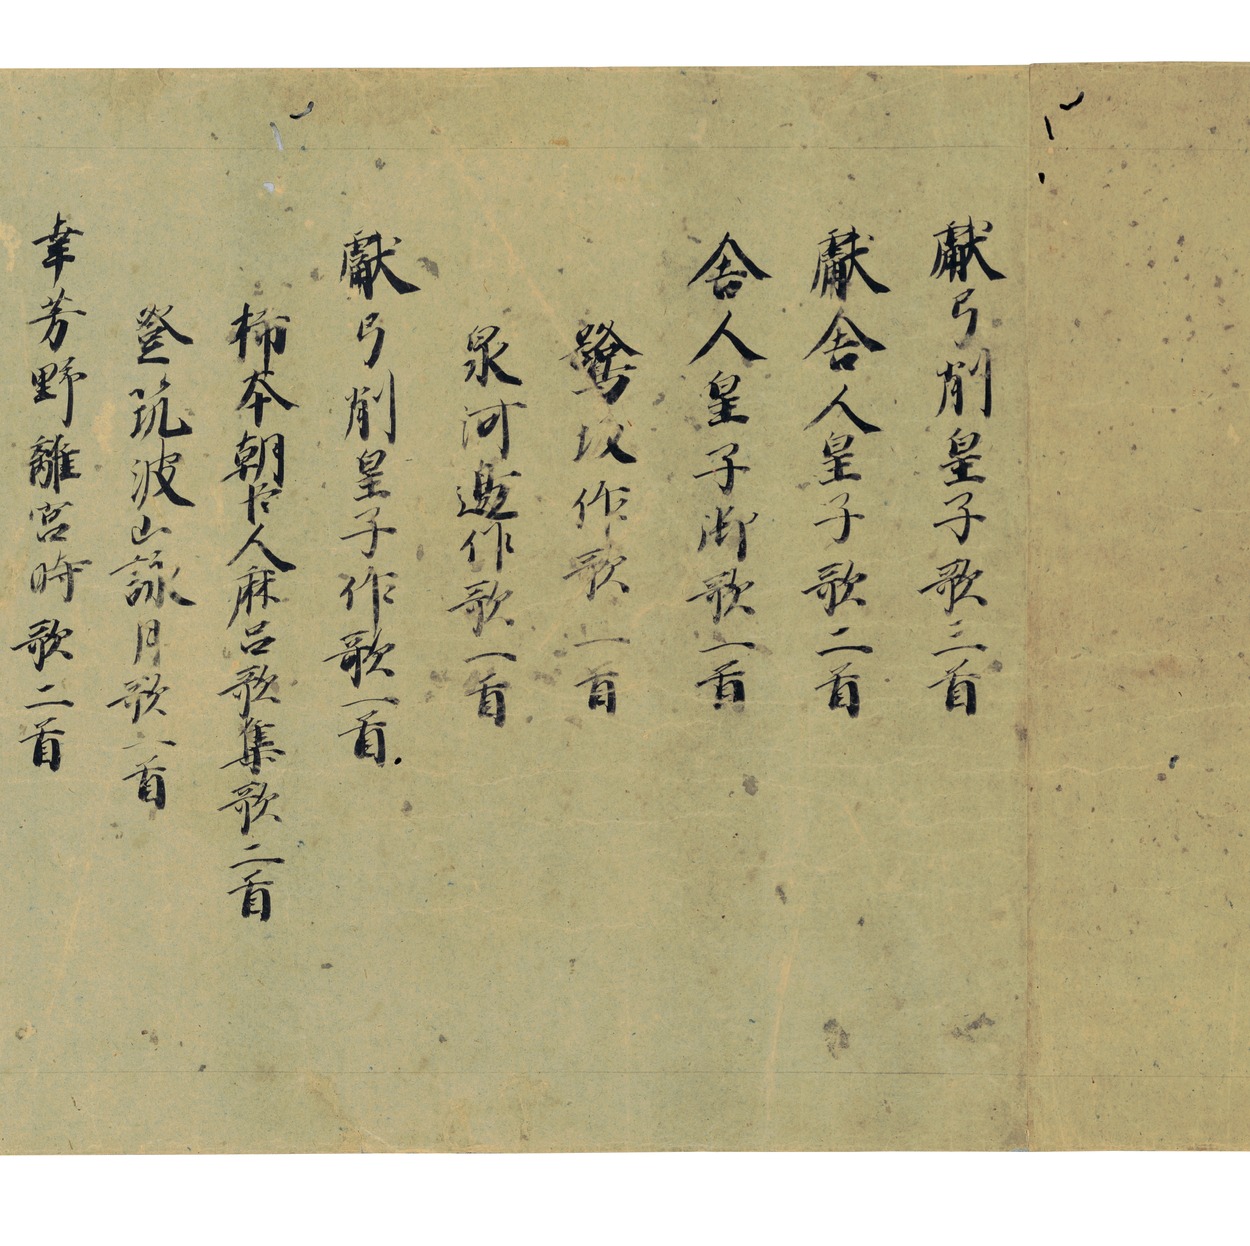 獻弓削皇子歌三首
獻舍人皇子歌二首
舍人皇子御歌一首
鷺坂作歌一首
泉河邊作歌一首
獻弓削皇子作歌一首
柿本朝臣人麻呂歌集歌二首
登筑波山詠月歌一首
幸芳野離宮時歌二首